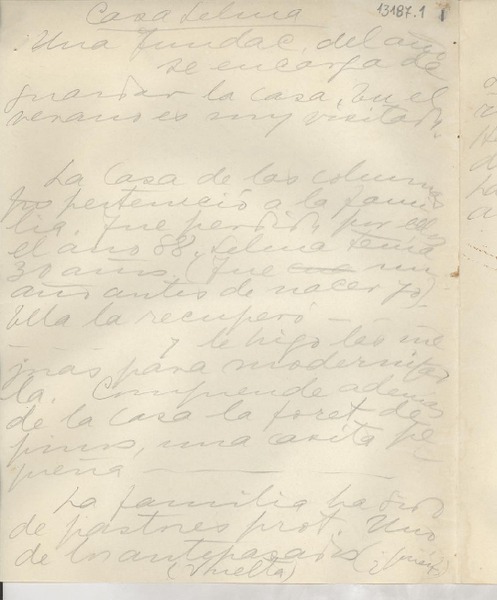 13187.1
Casa Selma
Una Fundac. del año
se encarga de
guardar la casa. En el
verano es muy visitada.
La Casa de las colum
nas perteneció a la fami
lia. Fue perdida por ella
el año 88. Selma tenía
30 años. (Fue un
año antes de nacer yo).
Ella la recuperó —
— y le hizo las me
joras para modernizar
la. Comprende además
de la casa la foret de
pinos, una casita pe
queña —
La familia ha sido
de pastores prot. Uno
de los antepasados
(vuelta)